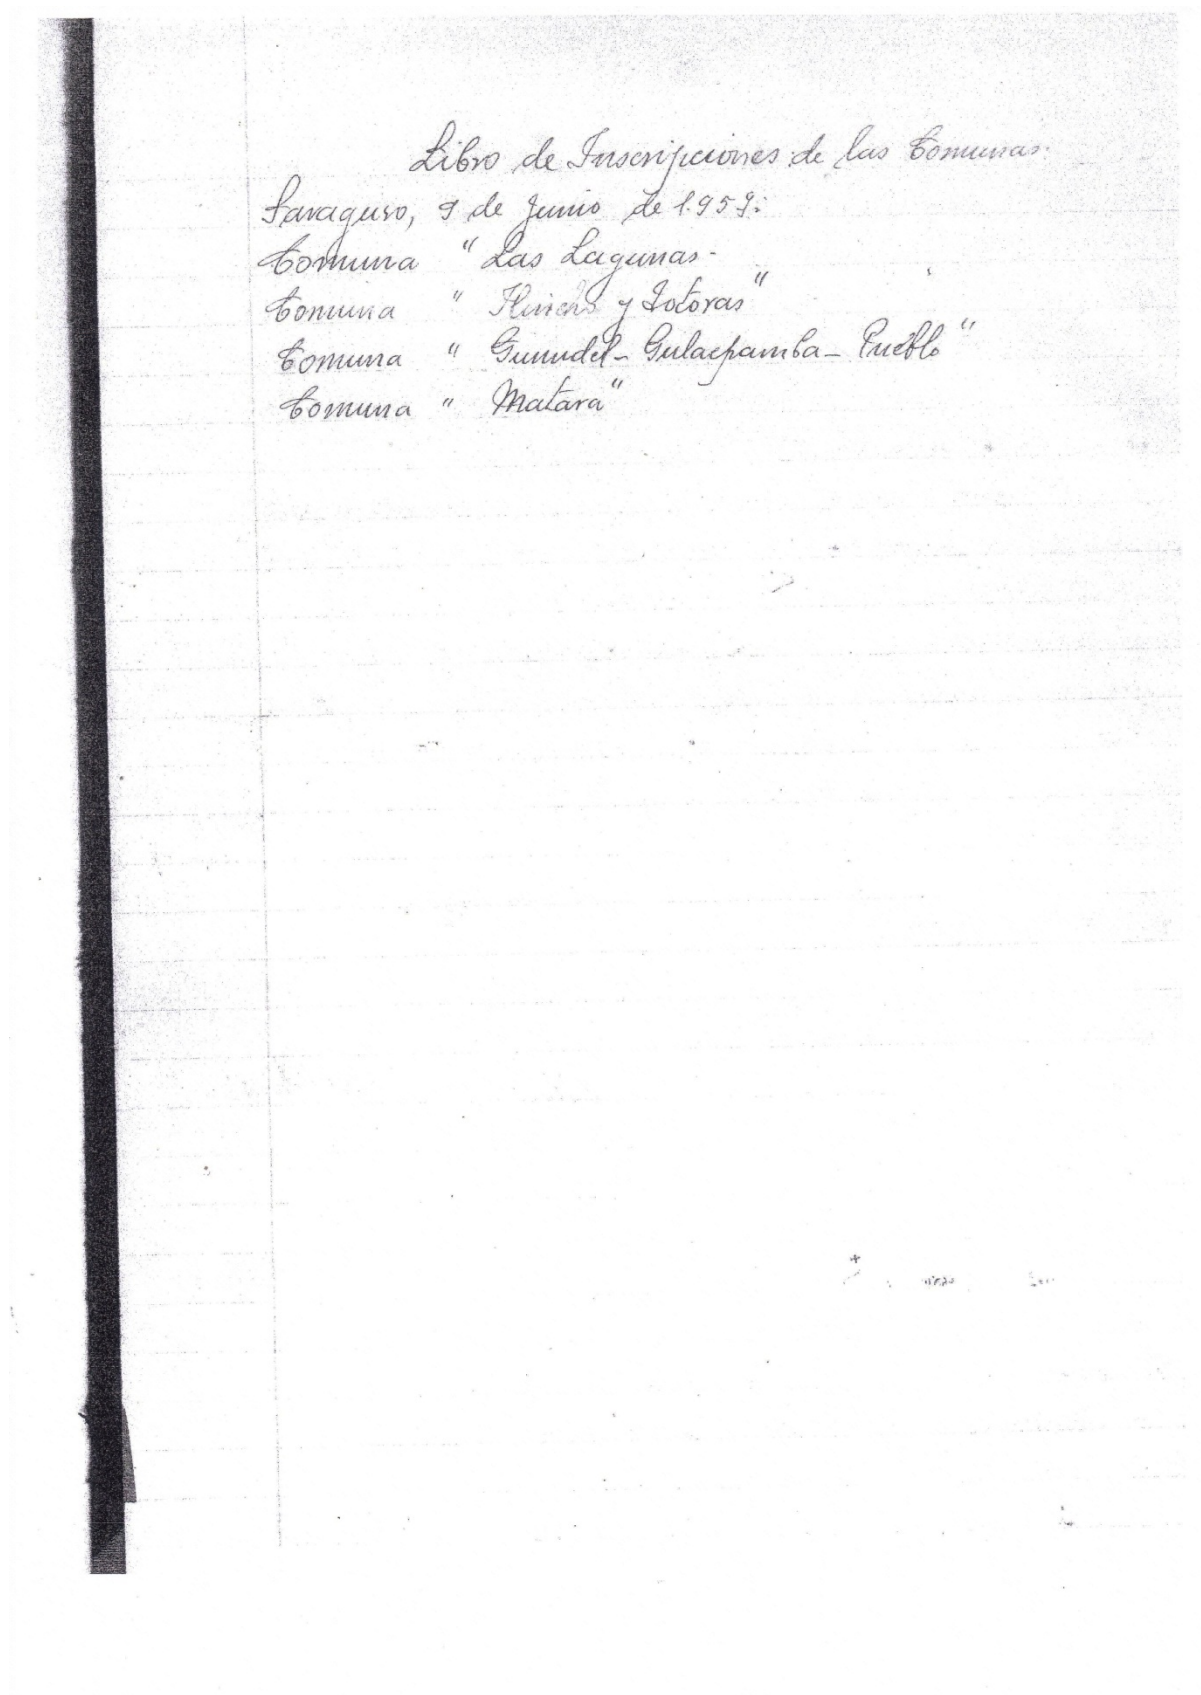 Libro de Inscripciones de las Comunas.
Saraguro, 9 de Junio de 1.959:
Comuna " Las Lagunas-
Comuna " Ilincho y Totoras"
Comuna " Gunudel- Gulacpamba- Pueblo"
Comuna " Matara"